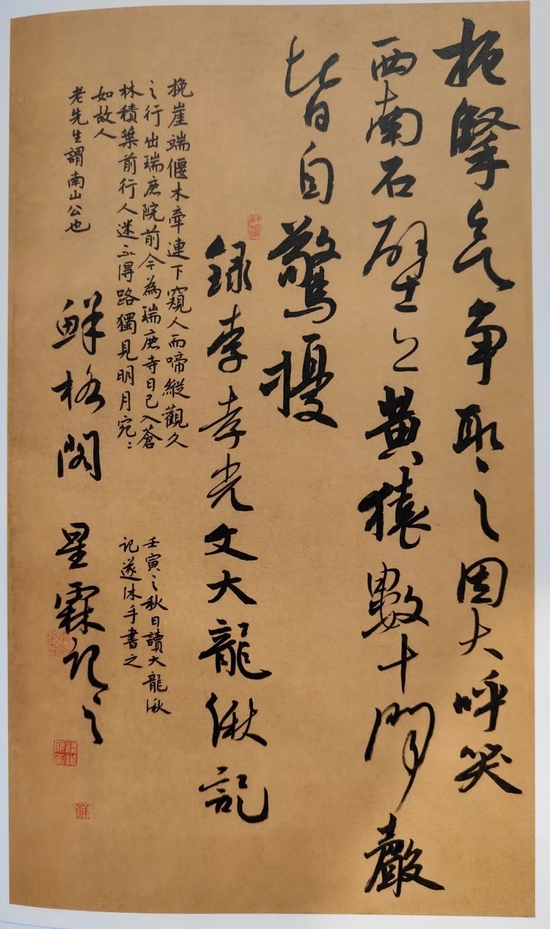 扼掔争取之因大呼笑
西南石壁上黃猿數十聞聲
皆自驚擾
錄李孝光文大龍湫記
挽崖端偃木牽連下窺人而啼縱觀久
之行出瑞鹿院前今為瑞鹿寺日已入蒼
林積葉前行人迷不得路獨見明月宛宛
如故人
老先生謂南山公也
壬寅之秋日讀大龍湫
記遂手書之
鮮格阁 星霖記之